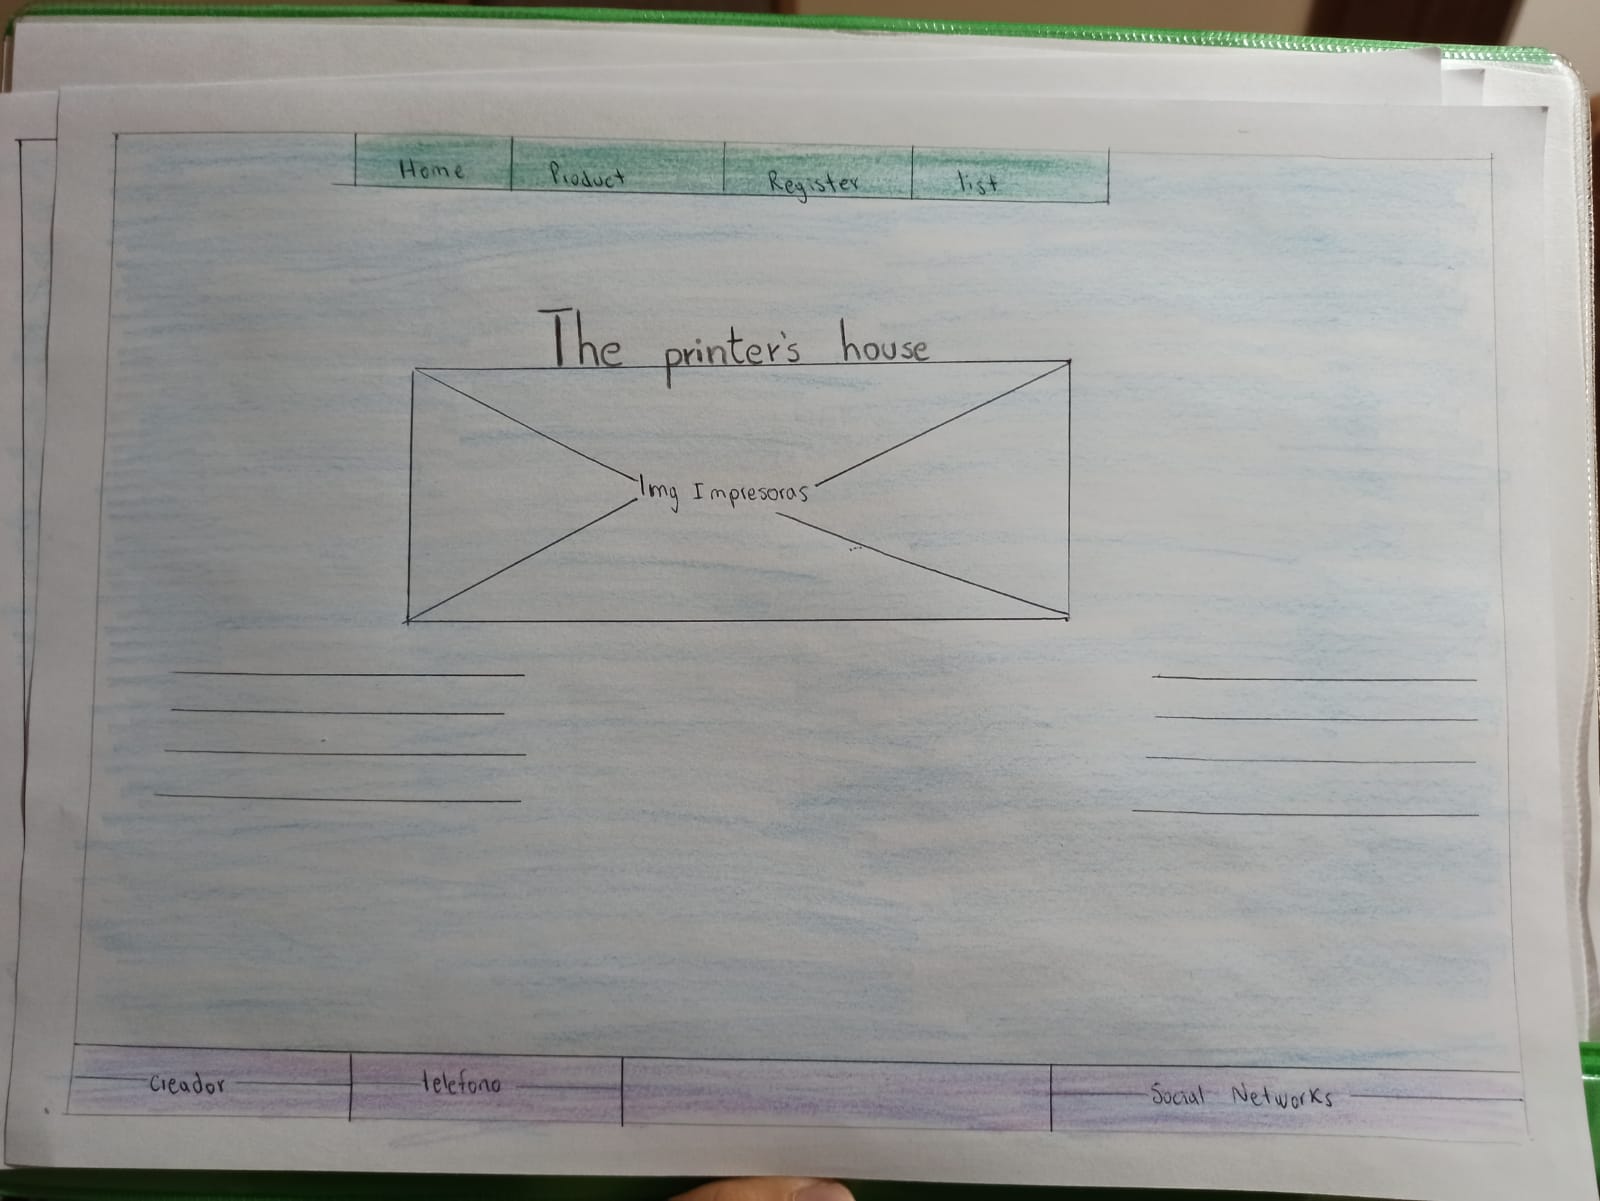 Home Product Register list
The printer's house
Img Impresoras
Creador telefono Social Networks